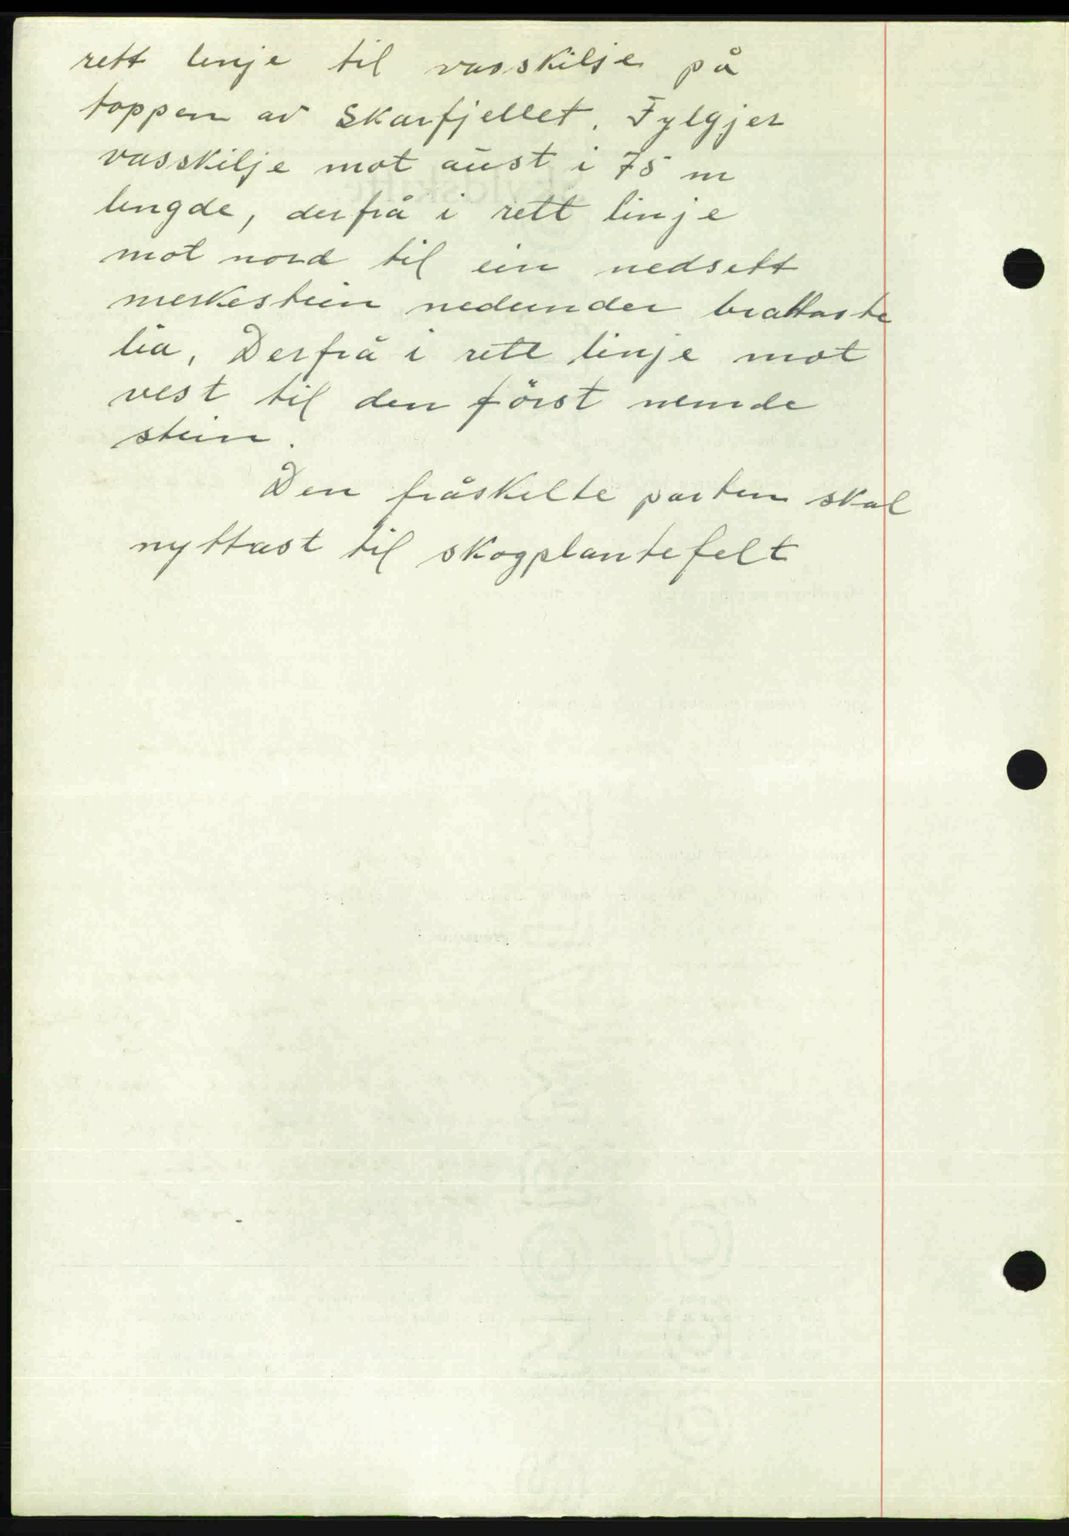 rett linje til vasskilje på
toppen av Skarfjellet. Fylgjer
vasskilje mot aust i 75 m
lengde, derfrå i rett linje
mot nord til ein nedsett
merkestein nedunder brattaste
lia, Derfrå i rett linje mot
vest til den först nemde
stein.
Den fråskelte parten skal
nyttast til skogplantefelt